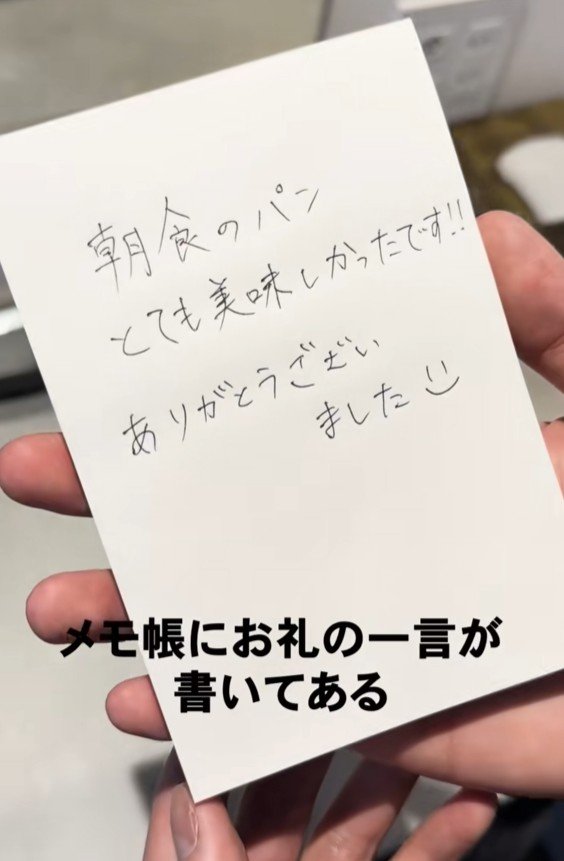 朝食のパン
とても美味しかったです!!
ありがとうござい
ました
メモ帳にお礼の一言が
書いてある